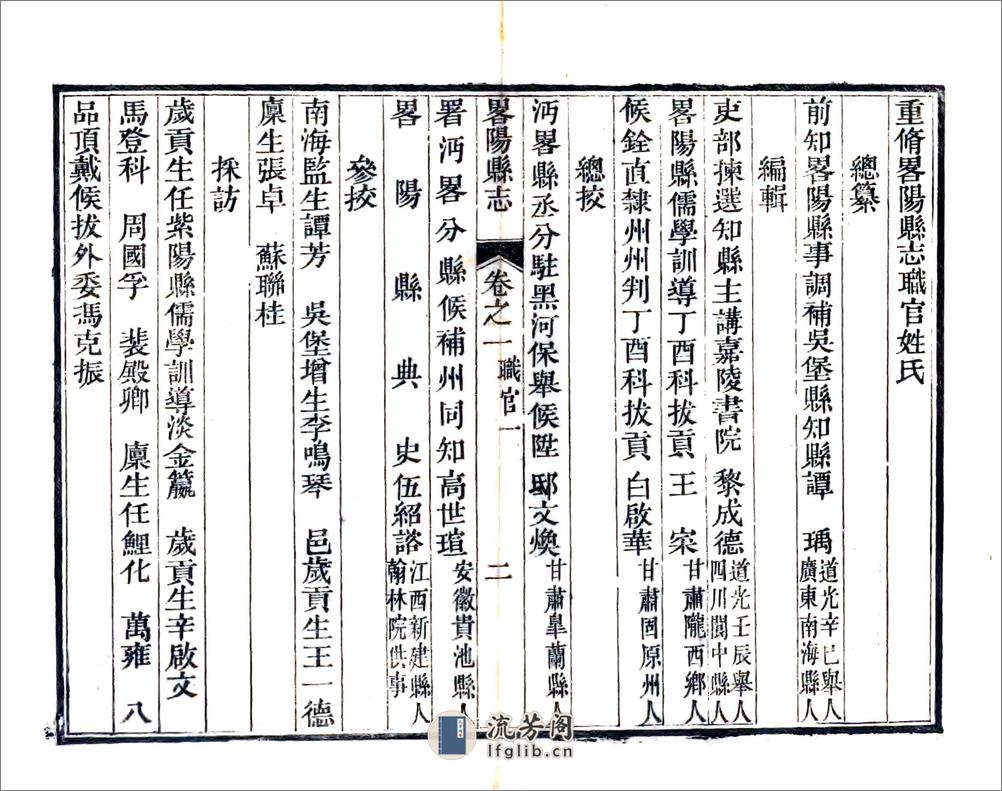 重脩畧陽縣志職官姓氏
總纂
前知畧陽縣事調補吳堡縣知縣譚　瑀道光辛巳舉人廣東南海縣人
編輯
吏部揀選知縣主講嘉陵書院　黎成德道光壬辰舉人四川閬中縣人
畧陽縣儒學訓導丁酉科拔貢　王　寀甘肅隴西鄉人
候銓直隸州州判丁酉科拔貢　白啟華甘肅固原州人
總挍
沔畧縣丞分駐黑河保舉候陞　邸文煥甘肅臯蘭縣人
畧陽縣志　卷之一　職官一　二
署沔畧分縣候補州同知高世瑄安徽貴池縣人
畧陽縣典史伍紹諮江西新建縣人翰林院供事
參挍
南海監生譚芳　吳堡增生李鳴琴　邑歲貢生王一德
廩生張卓　蘇聯桂
採訪
歲貢生任紫陽縣儒學訓導淡金籯　歲貢生辛啟文
馬登科　周國孚　裴殿卿　廩生任鯉化　萬雍　八
品頂戴候拔外委馮克振
流芳阁
lfglib.cn